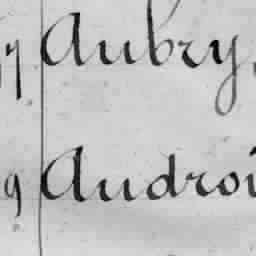 7 Aubry,
9 Androi